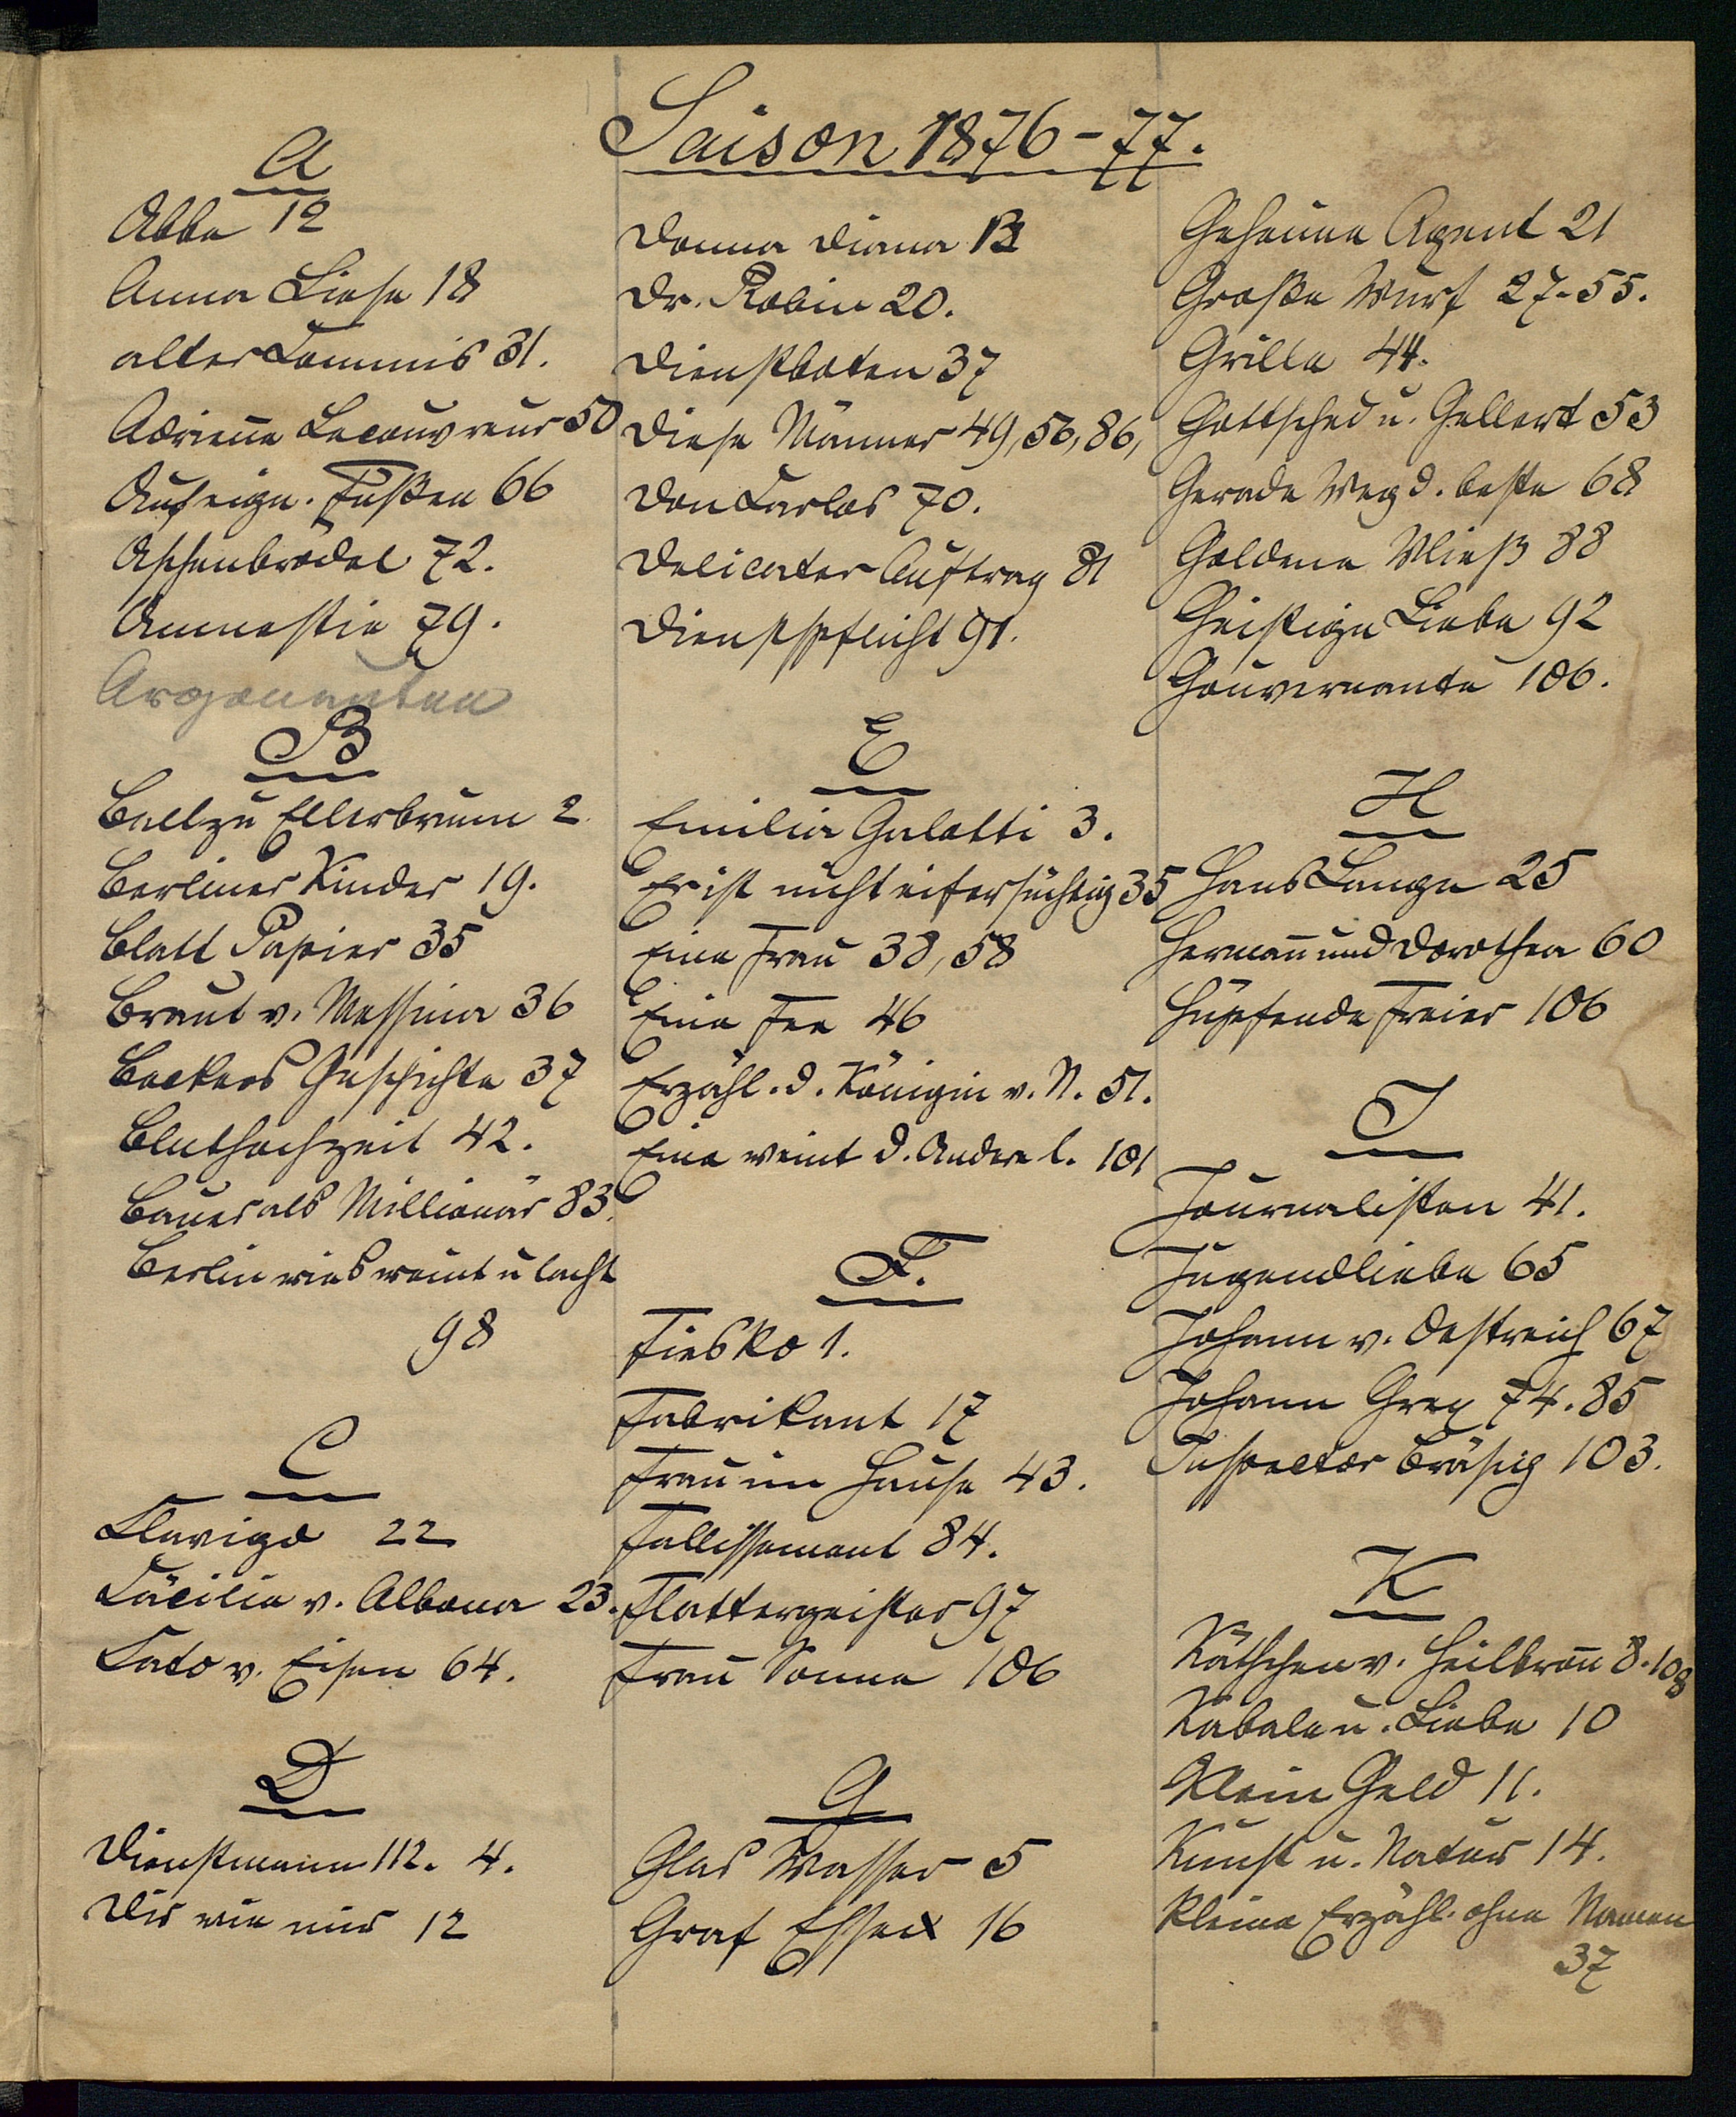 Saison 1876-77.
A
Abbe 12
Anna Liese 18
alter Commis 31.
Adrienne Lecouvreur 50
Auf eign. Füßen 66
Aschenbrödel 72.
Amnestie 79.
Argonauten
B
Ball zu Ellerbrunn 2.
Berliner Kinder 19.
Blatt Papier 35
Braut v. Messina 36
Beckers Geschichte 37
Bluthochzeit 42.
Bauer als Millionär 83.
Berlin wies weint u lacht
98
C
Clavigo 22
Cäcilia v. Albano 23.
Cato v. Eisen 64.
D
Dienstmann 112. 4.
Dir wie mir 12
Donna Diana 13
Dr. Robin 20.
Dienstboten 37
Diese Männer 49, 56, 86,
Don Carlos 70.
Delicater Auftrag 81
Dienstpflicht 91.
E
Emilia Galotti 3.
Er ist nicht eifersüchtig 35
Eine Frau 38, 58
Eine Fee 46
Erzähl. d. Königin v. N. 51.
Eine weint d. Andre l. 101
F.
Fiesko 1.
Fabrikant 17
Frau im Hause 43.
Fallissement 84.
Flattergeister 97
Frau Sonne 106
G
Glas Wasser 5
Graf Essex 16
Geheime Agent 21
Große Wurf 27-55.
Grille 44.
Gottsched u. Gellert 53
Gerade Weg d. beste 68
Goldene Vließ 88
Geistige Liebe 92
Gouvernante 106.
H
Hans Lange 25
Hermann und Dorothea 60
Hüpfende Freier 106
J
Journalisten 41.
Jugendliebe 65
Johann v. Oestreich 67
Johann Grey 74. 85
Inspector Bräsig 103.
K
Käthchen v. Heilbronn 8. 108
Kabale u. Liebe 10
Klein Geld 11.
Kunst u. Natur 14.
Kleine Erzähl. ohne Namen
37